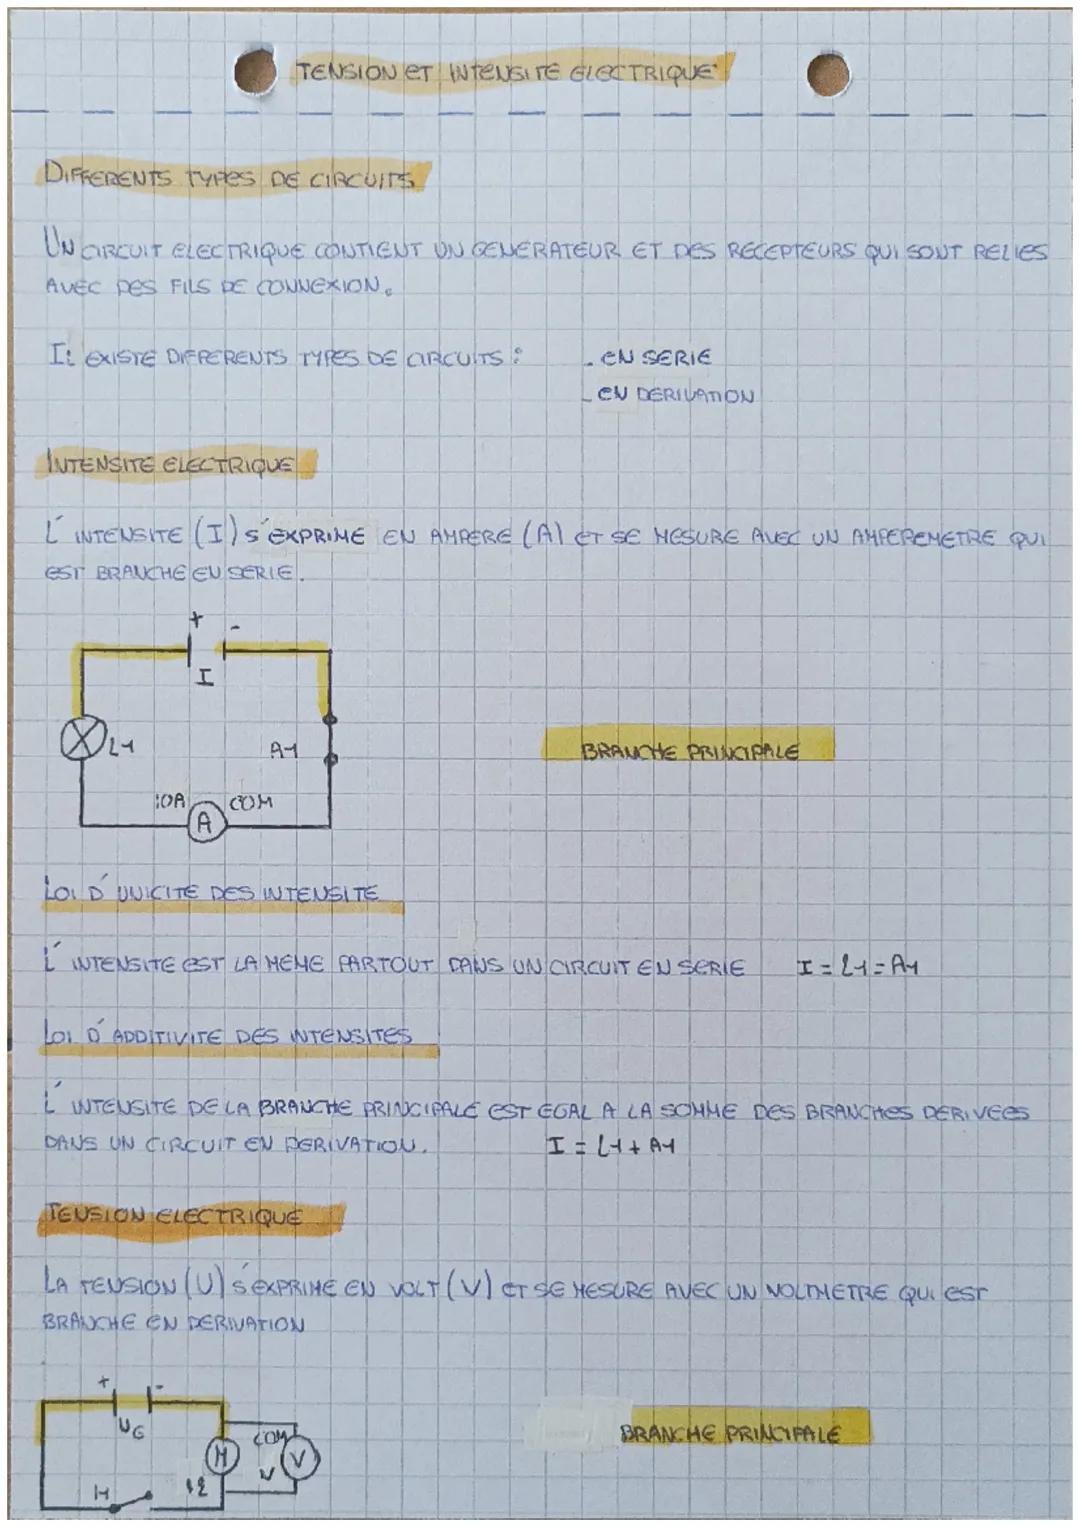 TENSION ET INTENSITE ELECTRIQUE
DIFFERENTS TYPES DE CIRCUITS
UN CIRCUIT ELECTRIQUE CONTIENT UN GENERATEUR ET DES RECEPTEURS QUI SONT RELIES
AVEC DES FILS DE CONNEXION.
IL EXISTE DIFFERENTS TYPES DE CIRCUITS : - EN SERIE
- EN DERIVATION
INTENSITE ELECTRIQUE
L'INTENSITE (I) S'EXPRIME EN AMPERE (A) ET SE MESURE AVEC UN AMPEREMETRE QUI
EST BRANCHE EN SERIE.
+ -
I
L1 A1
BRANCHE PRINCIPALE
10A COM
A
LOI D'UNICITE DES INTENSITE
L'INTENSITE EST LA MEME PARTOUT DANS UN CIRCUIT EN SERIE I = L1 = A1
LOI D'ADDITIVITE DES INTENSITES
L'INTENSITE DE LA BRANCHE PRINCIPALE EST EGAL A LA SOMME DES BRANCHES DERIVEES
DANS UN CIRCUIT EN DERIVATION. I = L1 + A1
TENSION ELECTRIQUE
LA TENSION (U) S'EXPRIME EN VOLT (V) ET SE MESURE AVEC UN VOLTMETRE QUI EST
BRANCHE EN DERIVATION
+ -
UG
COM
BRANCHE PRINCIPALE
M V V